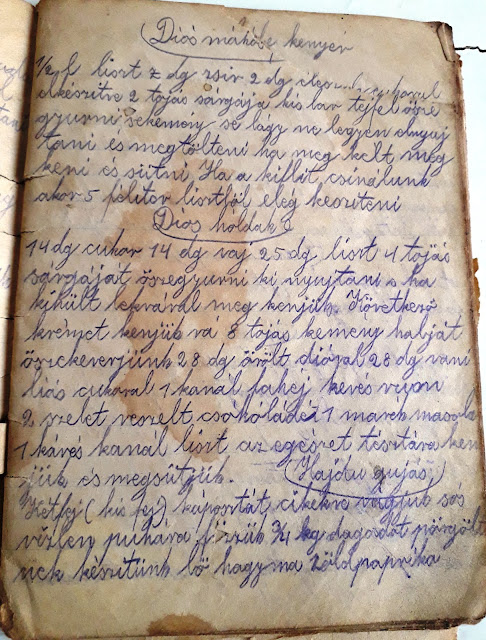 Diós mákos kenyér
1/2 l liszt z dg zsir 2 dg élesztö cukorral
elkészitve 2 tojás sárgája kis tar tejfel össze
gyurni sekemény se lágy ne legyen elnyuj
tani és megtölteni ha meg kelt meg
keni és sütni Ha a kiflit csinálunk
akor 5 féliter lisztből elég késziteni
Diós holdak
14 dg cukor 14 dg vaj 25 dg liszt 4 tojás
sárgáját öszegyurni ki nyujtani s ha
kihült lekvárral meg kenjük. Következö
krémet kenjük rá 8 tojás kemény habját
öszekeverjünk 28 dg örölt dióval 28 dg vani
liás cukoral 1 kanál fahéj kevés
2 szelet reszelt csokoládé 1 marék mazsola
1 kávés kanál liszt az egészet tésztára ken
jük és megsütjük.
Hajdu gujás
Kétfej (kis fej) káposztát cikekre vágjuk sós
vizben puhára főzzük 3/4 kg dagadót pörgölt
nek készitünk bö hagyma zöldpaprika